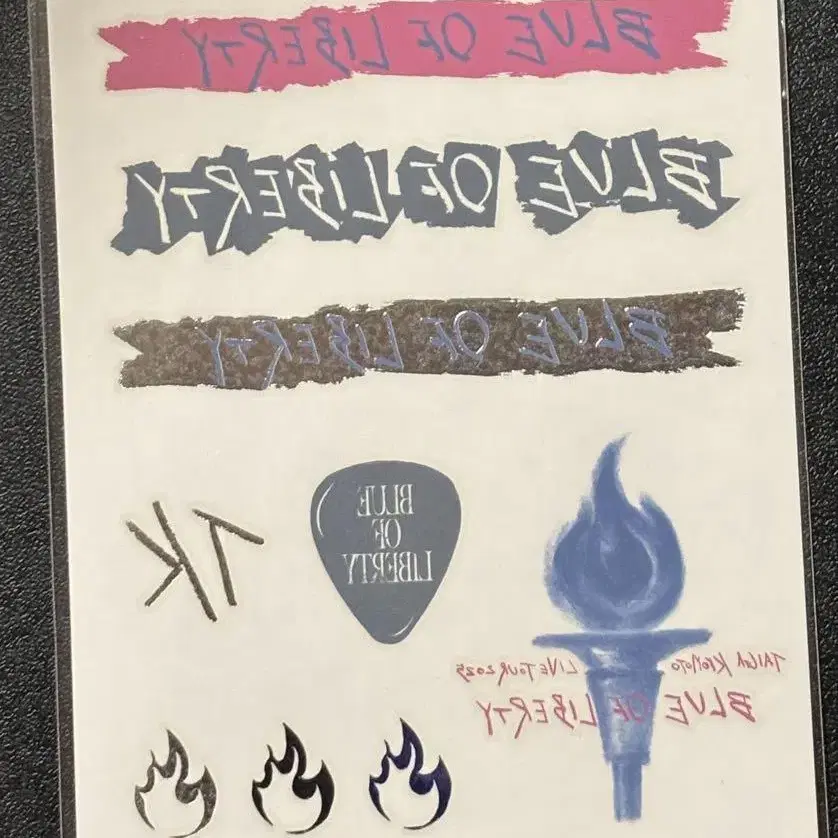 BLUE OF LIBERTY
BLUE OF LIBERTY
BLUE OF LIBERTY
TK
BLUE
OF
LIBERTY
TAIGA KYOMOTO LIVE TOUR 2025
BLUE OF LIBERTY